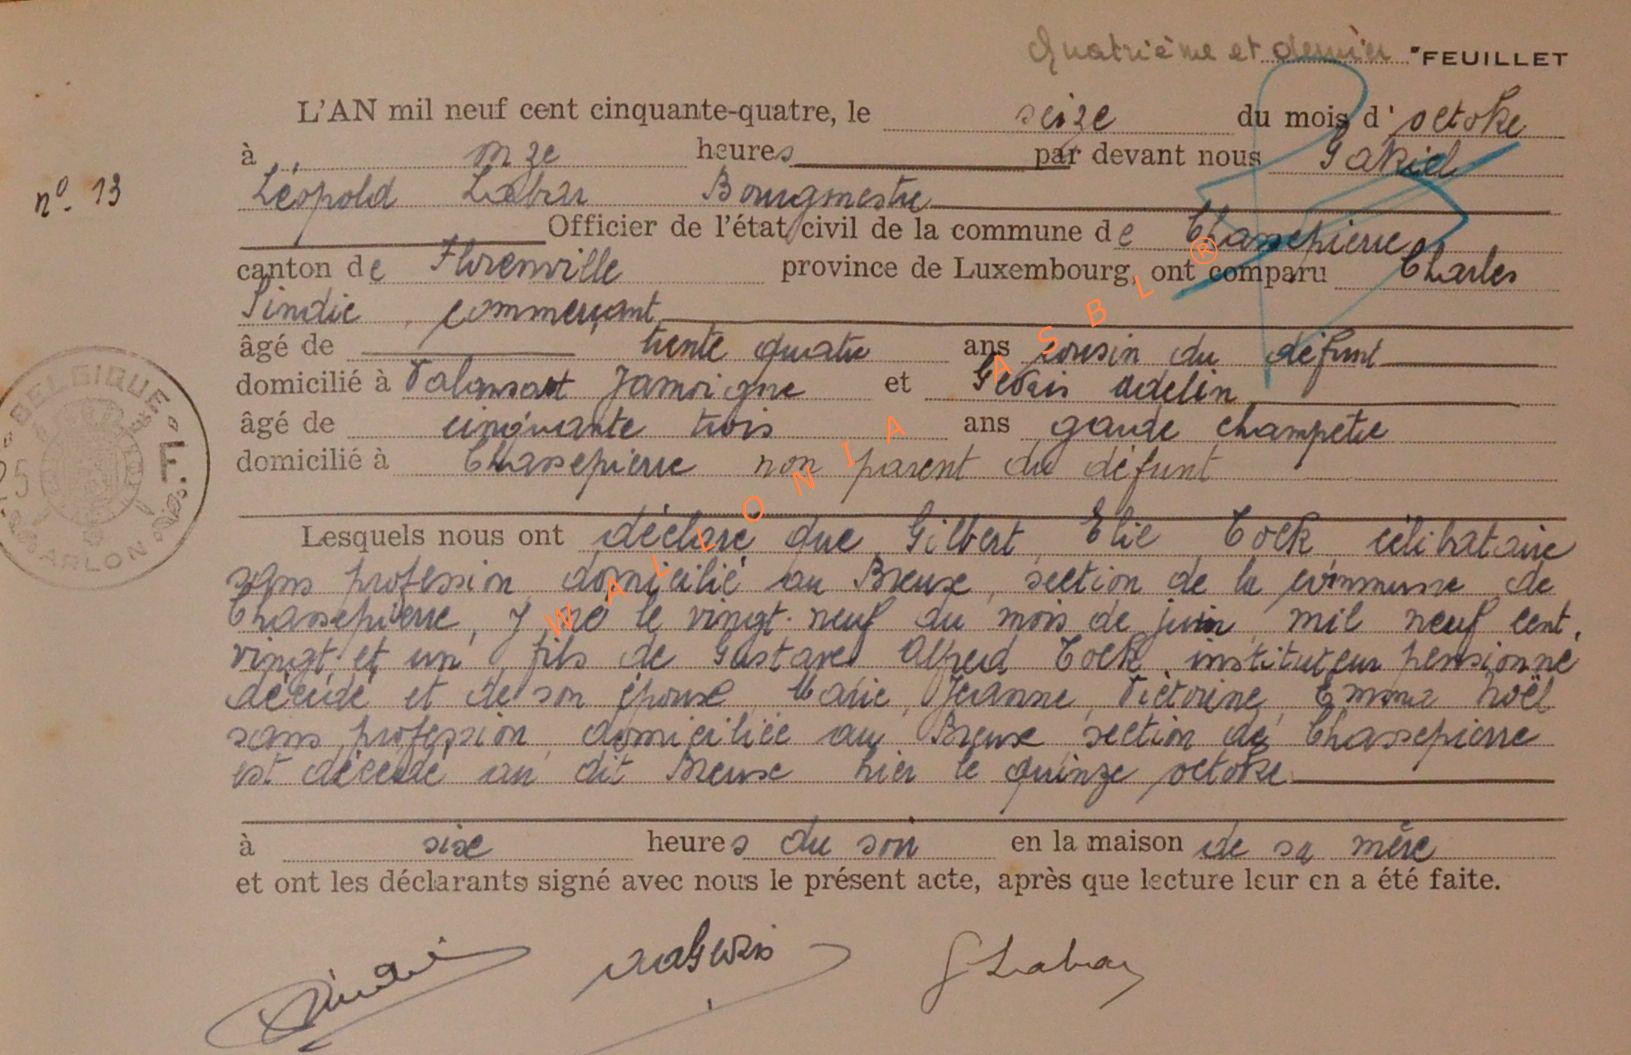 Quatrième et dernier FEUILLET
L'AN mil neuf cent cinquante-quatre, le seize du mois d'octobre
à onze heures par devant nous Gabriel
nº 13
Léopold Labar Bourgmestre
Officier de l'état civil de la commune de Chassepierre
canton de Florenville province de Luxembourg, ont comparu Charles
Sindic, commerçant
âgé de trente quatre ans cousin du défunt
domicilié à Valansart Jamoigne et Gervais adelin
âgé de cinquante trois ans garde champetre
domicilié à Chassepierre non parent du défunt
BELGIQUE
25 F.
ARLON
Lesquels nous ont déclaré que Gilbert, Elie Tock, célibataire
sans profession, domicilié au Breux, section de la commune de
Chassepierre, y né le vingt-neuf du mois de juin, mil neuf cent,
vingt et un, fils de Gustave Alfred Tock, instituteur pensionné
décédé et de son épouse Marie, Jeanne, Victorine, Emma Noël
sans profession, domiciliée au Breux section de Chassepierre
est décédé au dit Breux hier le quinze octobre
à six heures du soir en la maison de sa mère
et ont les déclarants signé avec nous le présent acte, après que lecture leur en a été faite.
WALLONIA ASBL ®
Sindic
G Labar